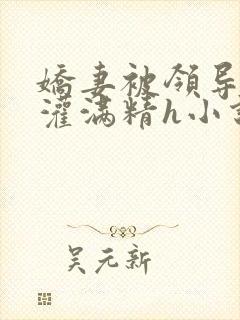 嬌妻被領导
灌满精h小
吴元新